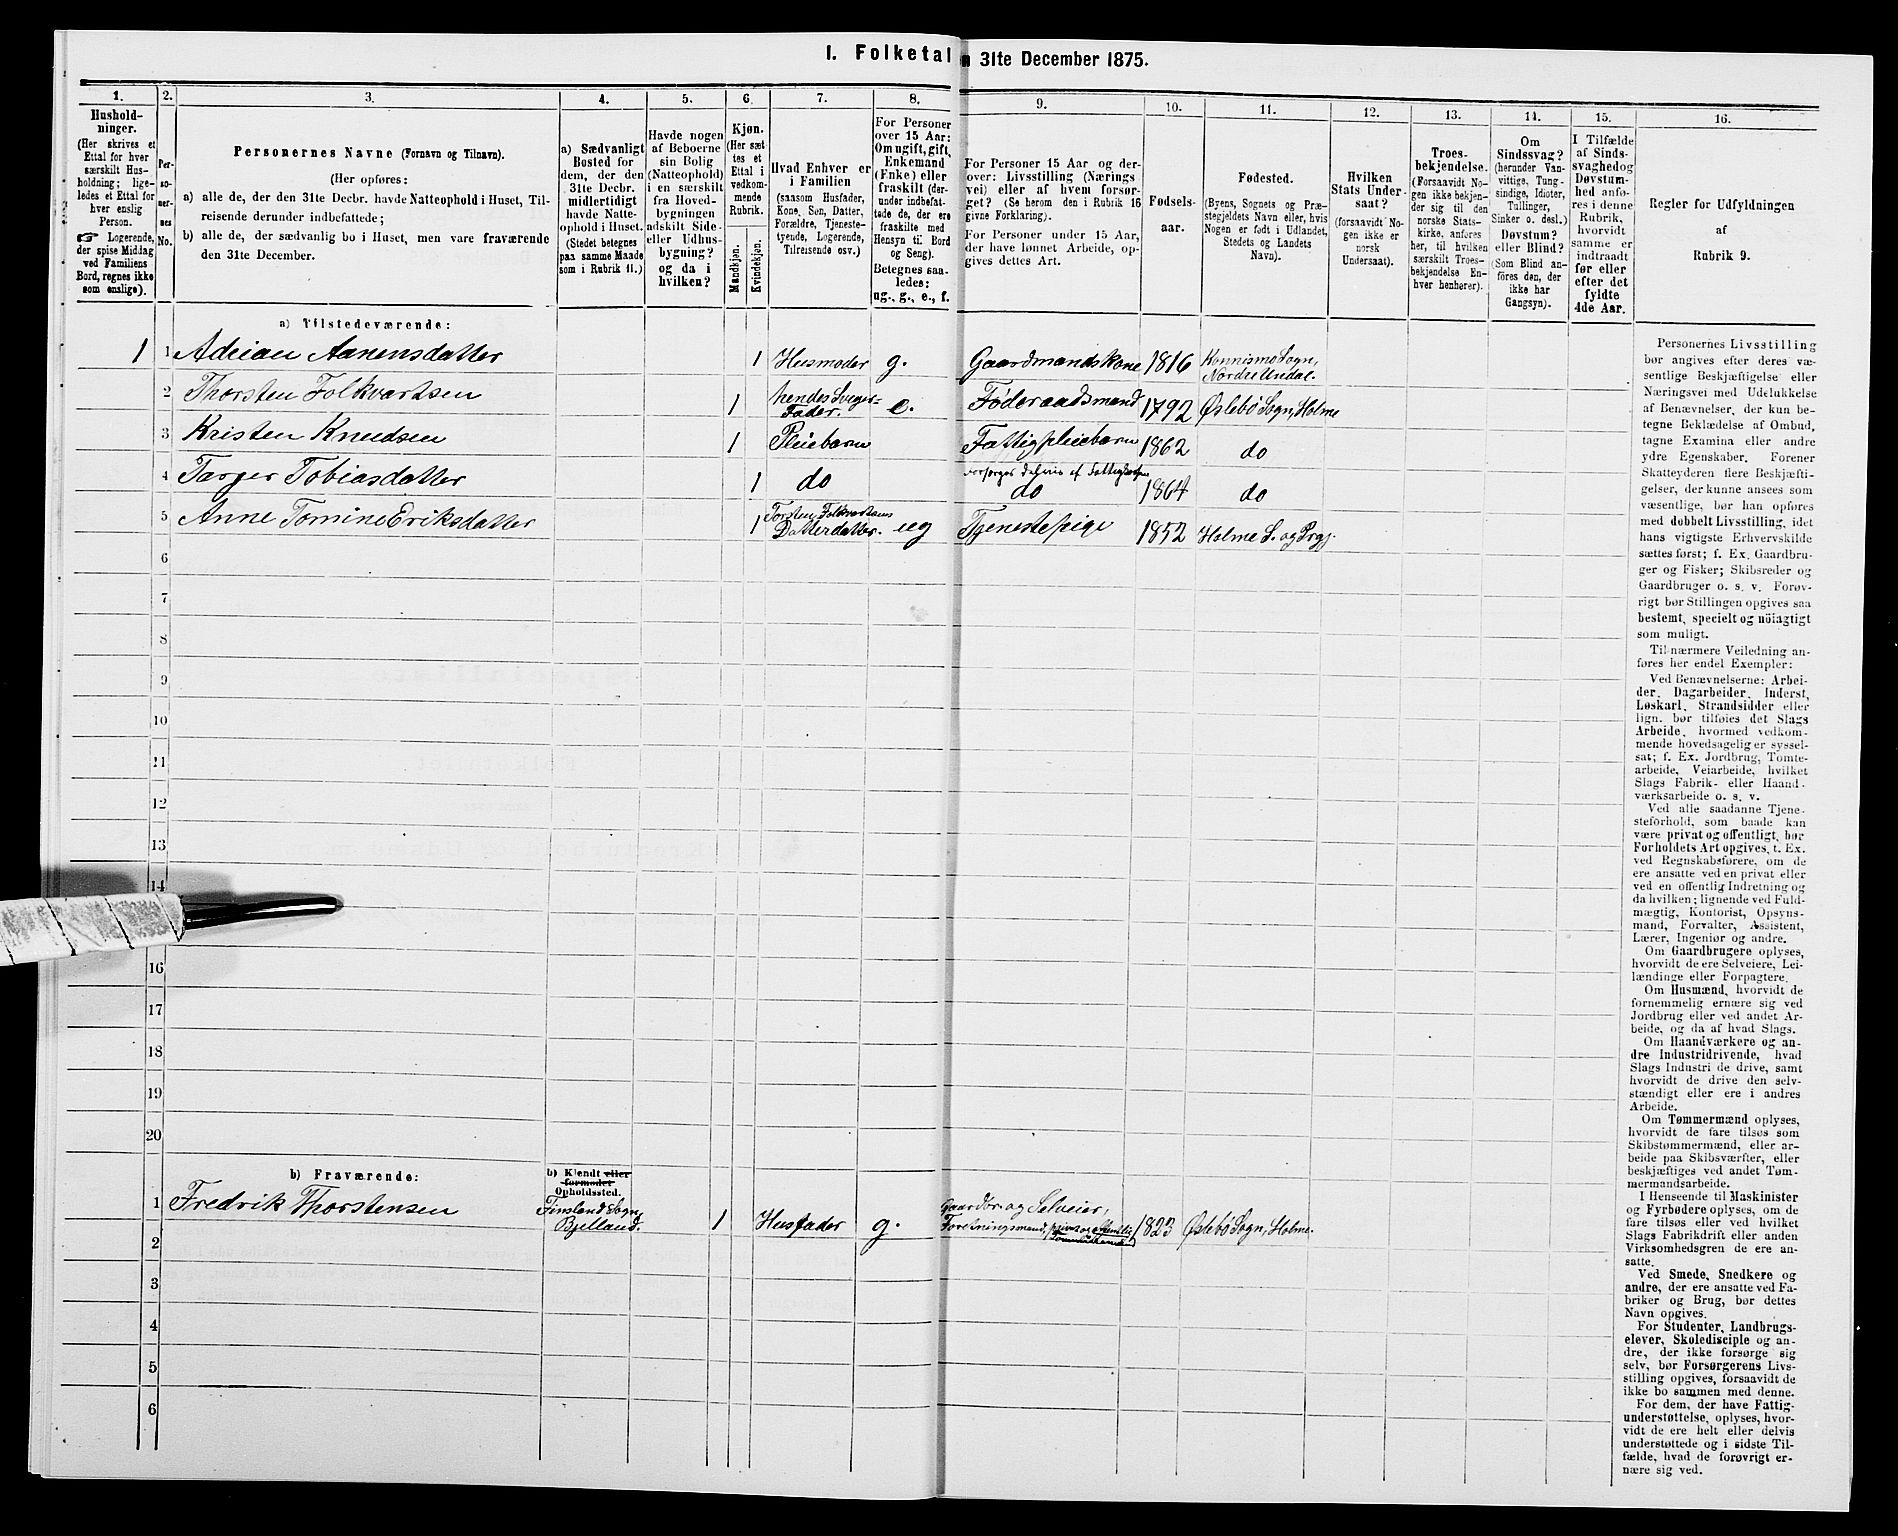 I. Folketal
31te December 1875.
1.
Hushold-
ninger.
(Her skrives et
Ettal for hver
særskilt Hus-
holdning; lige-
ledes et Ettal for
hver enslig
Person.
☞ Logerende,
der spise Middag
ved Familiens
Bord, regnes ikke
som enslige).
2.
Per-
so-
ner-
nes
No.
3.
Personernes Navne (Fornavn og Tilnavn).
(Her opføres:
a) alle de, der den 31te Decbr. havde Natteophold i Huset, Til-
reisende derunder indbefattede;
b) alle de, der sædvanlig bo i Huset, men vare fraværende
den 31te December.
4.
a) Sædvanligt
Bosted for
dem, der den
31te Decbr.
midlertidigt
havde Natte-
ophold i Huset.
(Stedet betegnes
paa samme Maade
som i Rubrik 11.)
5.
Havde nogen
af Beboerne
sin Bolig
(Natteophold)
i en særskilt
fra Hoved-
bygningen
adskilt Side-
eller Udhus-
bygning?
og da i
hvilken?
6.
Kjøn.
(Her sæt-
tes et
Ettal i
vedkom-
mende
Rubrik.
Mandkjøn.
Kvindekjøn.
7.
Hvad Enhver er
i Familien
(saasom Husfader,
Kone, Søn, Datter,
Forældre, Tjeneste-
tyende, Logerende,
Tilreisende osv.)
8.
For Personer
over 15 Aar:
Om ugift, gift,
Enkemand
(Enke) eller
fraskilt (der-
under indbefat-
tede de, der ere
fraskilte med
Hensyn til Bord
og Seng).
Betegnes saa-
ledes:
ug., g., e., f.
9.
For Personer 15 Aar og der-
over: Livsstilling (Nærings
vei) eller af hvem forsør-
get? (Se herom den i Rubrik 16
givne Forklaring).
For Personer under 15 Aar,
der have lønnet Arbeide, op-
gives dettes Art.
10.
Fødsels-
aar.
11.
Fødested.
(Byens, Sognets og Præ-
stegjeldets Navn eller, hvis
Nogen er født i Udlandet,
Stedets og Landets
Navn).
12.
Hvilken
Stats Under-
saat?
(forsaavidt No-
gen ikke er
norsk
Undersaat).
13.
Troes-
bekjendelse.
(Forsaavidt No-
gen ikke bekjen-
der sig til den
norske Stats-
kirke, anføres
her, til hvilken
særskilt Troes-
bekjendelse En-
hver henhører).
14.
Om
Sindssvag?
(herunder Van-
vittige, Tung-
sindige, Idioter,
Tullinger,
Sinker o. desl.)
Døvstum?
eller Blind?
(Som Blind an-
føres den, der
ikke har
Gangsyn).
15.
I Tilfælde
af Sinds-
svaghed og
Døvstum-
hed anfø-
res i denne
Rubrik,
hvorvidt
samme er
indtraadt
før eller
efter det
fyldte
4de Aar.
16.
Regler for Udfyldningen
af
Rubrik 9.
a) Tilstedeværende:
1 1 Adrian Aanensdatter 1 Husmoder g. Gaardmandskone 1816 Konnismo Sogn,
Nordre Undal.
2 Thorsten Folkvartsen 1 hendes Sviger-
Fader. e. Føderaadsmand 1792 Øslebø Sogn, Holme
3 Kristen Knudsen 1 Pleiebarn Fattigpleiebarn 1862 do
forsørges delvis af
4 Targer Tobiasdatter 1 do do 1864 do
5 Anne Tomine Eriksdatter 1 Torsten Folkvartsens
Datterdatter. ug Tjenestepige 1852 Holme S. og Prgj.
6
7
8
9
10
11
12
13
14
16
17
18
19
20
b) Fraværende:
b) Kjendt eller
formodet
Opholdssted.
1 Fredrik Thorstensen Finsland Sogn,
Bjelland. 1 Husfader g. Gaardbr. og Selveier,
Forretningsmand, privat og offentlig 1823 Øslebø Sogn, Holme.
2
3
4
5
6
Personernes Livsstilling
bør angives efter deres væ-
sentlige Beskjæftigelse eller
Næringsvei med Udelukkelse
af Benævnelser, der kun be-
tegne Beklædelse af Ombud,
tagne Examina eller andre
ydre Egenskaber. Forener
Skatteyderen flere Beskjæfti-
gelser, der kunne ansees som
væsentlige, bør han opføres
med dobbelt Livsstilling, idet
hans vigtigste Erhvervskilde
sættes først; f. Ex. Gaardbru-
ger og Fisker; Skibsreder og
Gaardbruger o. s. v. Forøv-
rigt bør Stillingen opgives saa
bestemt, specielt og nöiagtigt
som muligt.
Til nærmere Veiledning an-
føres her endel Exempler:
Ved Benævnelserne: Arbei-
der, Dagarbeider, Inderst,
Løskarl, Strandsidder eller
lign. bør tilføies det Slags
Arbeide, hvormed vedkom-
mende hovedsagelig er syssel-
sat; f. Ex. Jordbrug, Tomte-
arbeide, Veiarbeide, hvilket
Slags Fabrik- eller Haand-
værksarbeide o. s. v.
Ved alle saadanne Tjene-
steforhold, som baade kan
være privat og offentligt, bør
Forholdets Art opgives, t. Ex.
ved Regnskabsførere, om de
ere ansatte ved en privat eller
ved en offentlig Indretning og
da hvilken; lignende ved Fuld-
mægtig, Kontorist, Opsyns-
mand, Forvalter, Assistent,
Lærer, Ingeniør og andre.
Om Gaardbrugere oplyses,
hvorvidt de ere Selveiere, Lei-
lændinge eller Forpagtere.
Om Husmænd, hvorvidt de
fornemmelig ernære sig ved
Jordbrug eller ved andet Ar-
beide, og da af hvad Slags.
Om Haandværkere og an-
dre Industridrivende, hvad
Slags Industri de drive, samt
hvorvidt de drive den selv-
stændigt eller ere i andres
Arbeide.
Om Tømmermænd oplyses,
hvorvidt de fare tilsøs som
Skibstømmermænd, eller ar-
beide paa Skibsværfter, eller
beskjæftiges ved andet Tøm-
mermandsarbeide.
I Henseende til Maskinister
og Fyrbødere oplyses, om de
fare tilsøs eller ved hvilket
Slags Fabrikdrift eller anden
Virksomhedsgren de ere an-
satte.
Ved Smede, Snedkere og
andre, der ere ansatte ved Fa-
briker og Brug, bør dettes
Navn opgives.
For Studenter, Landbrugs-
elever, Skoledisciple og an-
dre, der ikke forsørge sig
selv, bør Forsørgerens Livs-
stilling opgives, forsaavidt de
ikke bo sammen med denne.
For dem, der have Fattig-
understøttelse, oplyses, hvor-
vidt de ere helt eller delvis
understøttede og i sidste Til-
fælde, hvad de forøvrigt er-
nære sig ved.